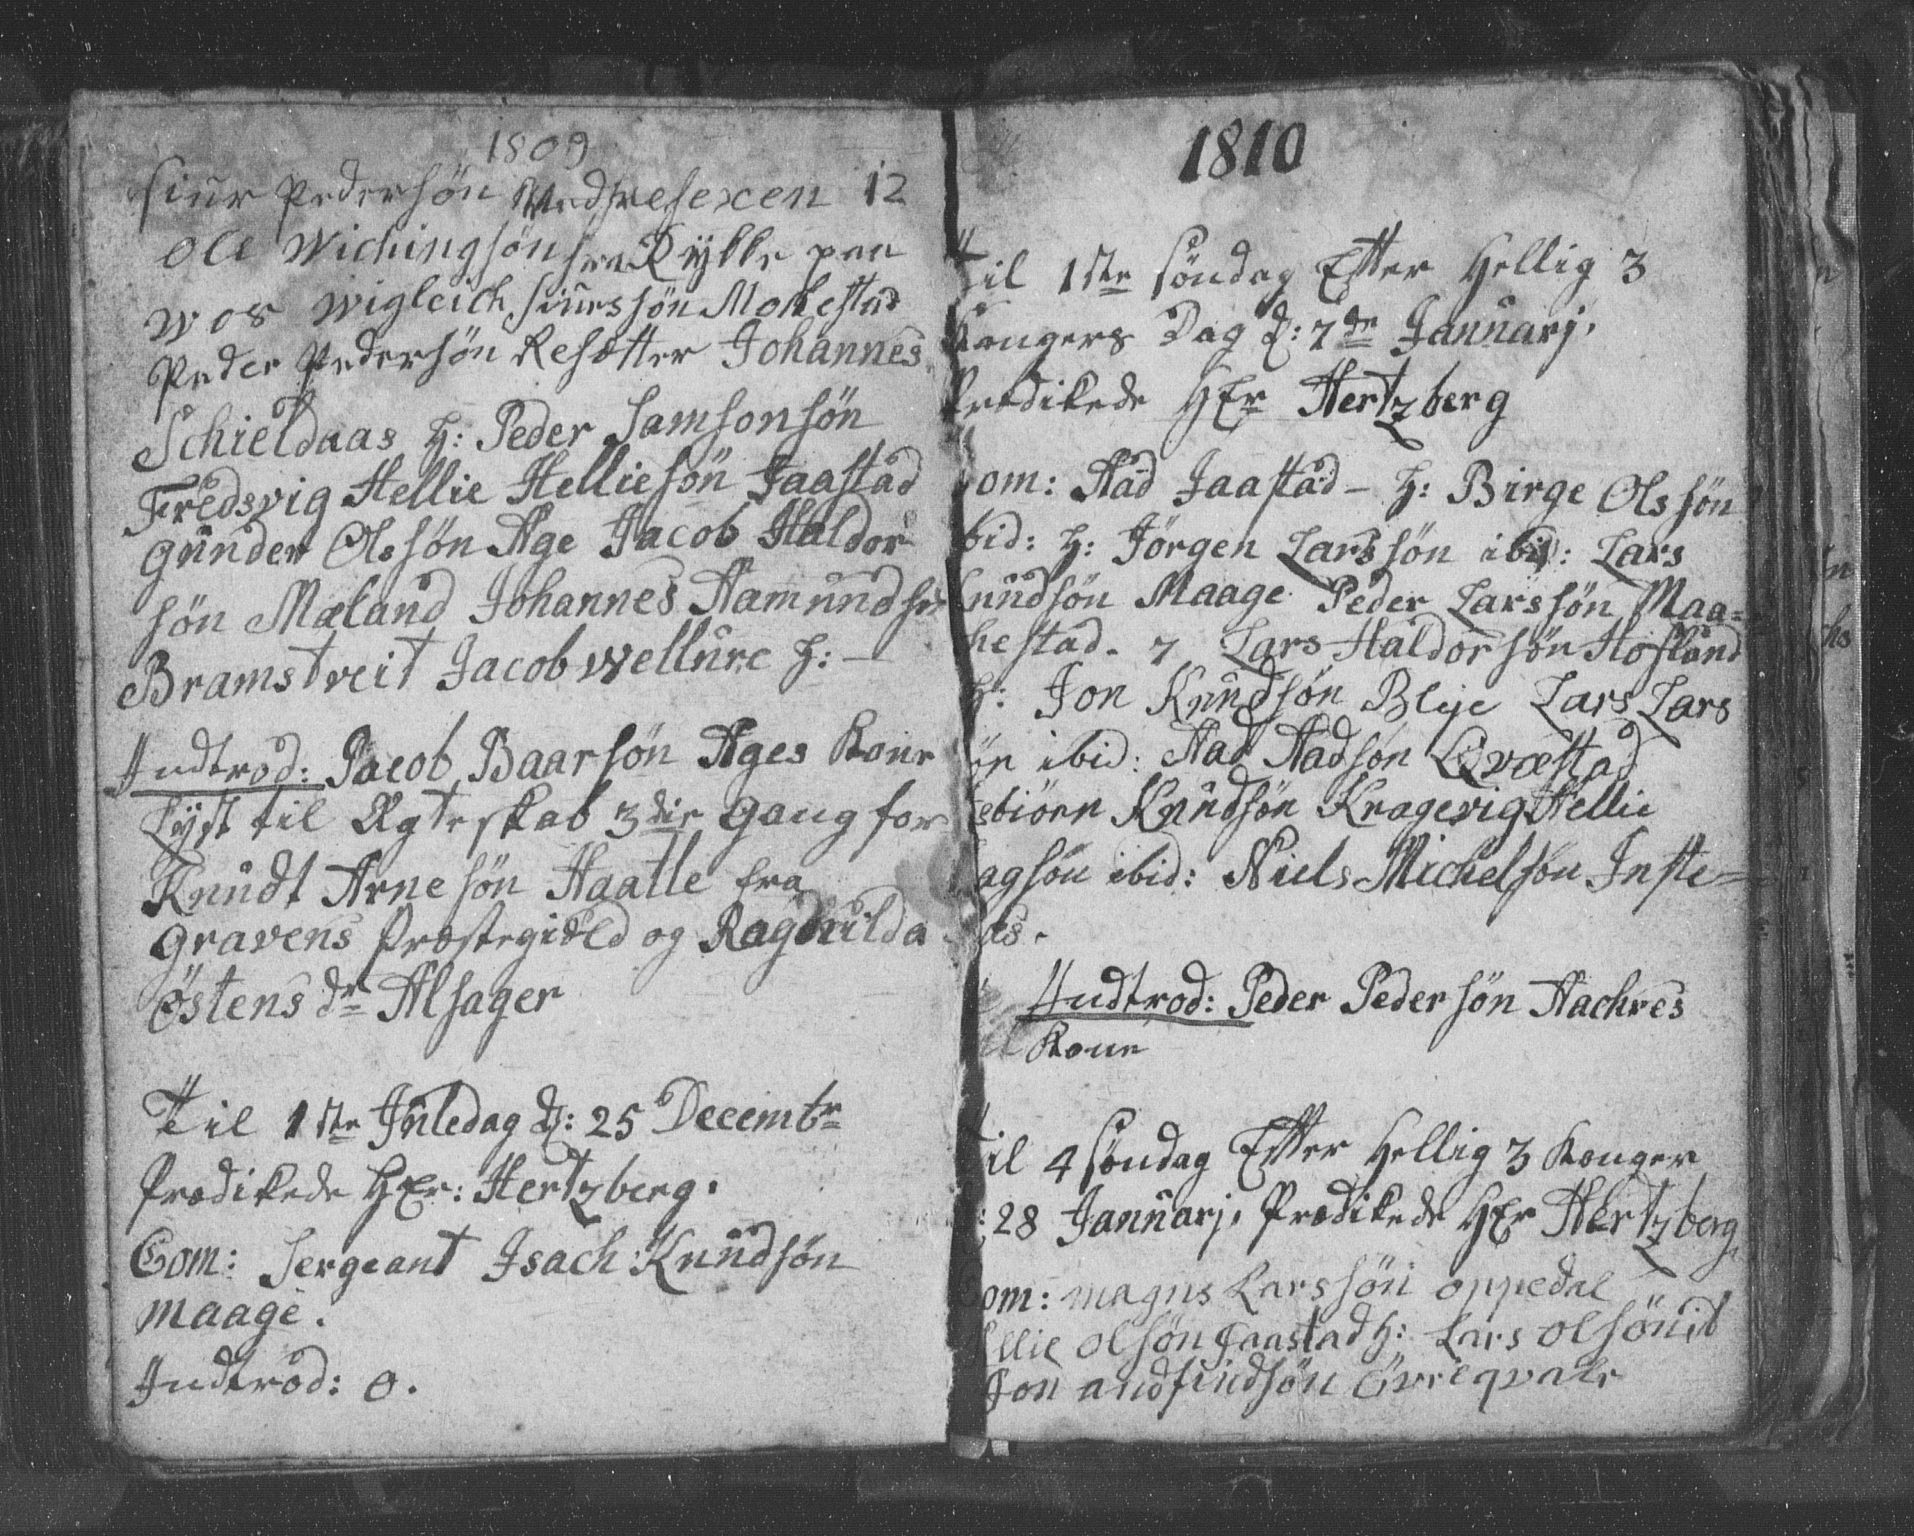 1809
siur Pedersön Medhresexen 12
Ole Wichingsön fra Rykke paa
wos wigleich siurssön Mokestad
Peder Pedersön Resætter Johannes
Schieldaas h: Peder Samsonsön
Fredsvig Hellie Helliesön Jaastad
gunder Olssön Age Jacob Haldor
sön Mæland Johannes Aamundsö
Bramstveit Jacob wellure h: —
Indtrod: Jacob Baarsön Ages Kone
Lyst til Ægteskab 3die gang for
Knudt Arnesön Haatle fra
gravens Præstegield og Ragdnilda
östens dr Alsager
Til 1ste Juledag d: 25 Decembr
Prædikede HEr: Hertzberg.
Com: Sergeant Isach Knudsön
maage.
Indtrod: 0.
1810
Til 1ste söndag Efter Hellig 3
Kongers Dag d: 7de Januarj.
Prædikede HEr Hertzberg
Com: Aad Jaastad – h: Birge Olssön
ibid: h: Jörgen Larssön ibid: Lars
Knudsön Maage Peder Larssön Maa=
kestad. 7 Lars Haldorsön Hofland
h: Jon Knudsön Bleje Lars Lars
sön ibid: Aad Aadsön Qvæstad
Knudsön Kragevig Hellie
agsön ibid: Niels Michelsön Inste=
aas.
Indtrod: Peder Pedersön Aachres
Kone
Til 4 söndag Efter Hellig 3 Konger
d: 28 Januarj. Prædikede HEr Hertzberg
Com: magns Larssön oppedal
Ellie olsön Jaastad h: Lars olsön it
Jon andfindsön övreqvale